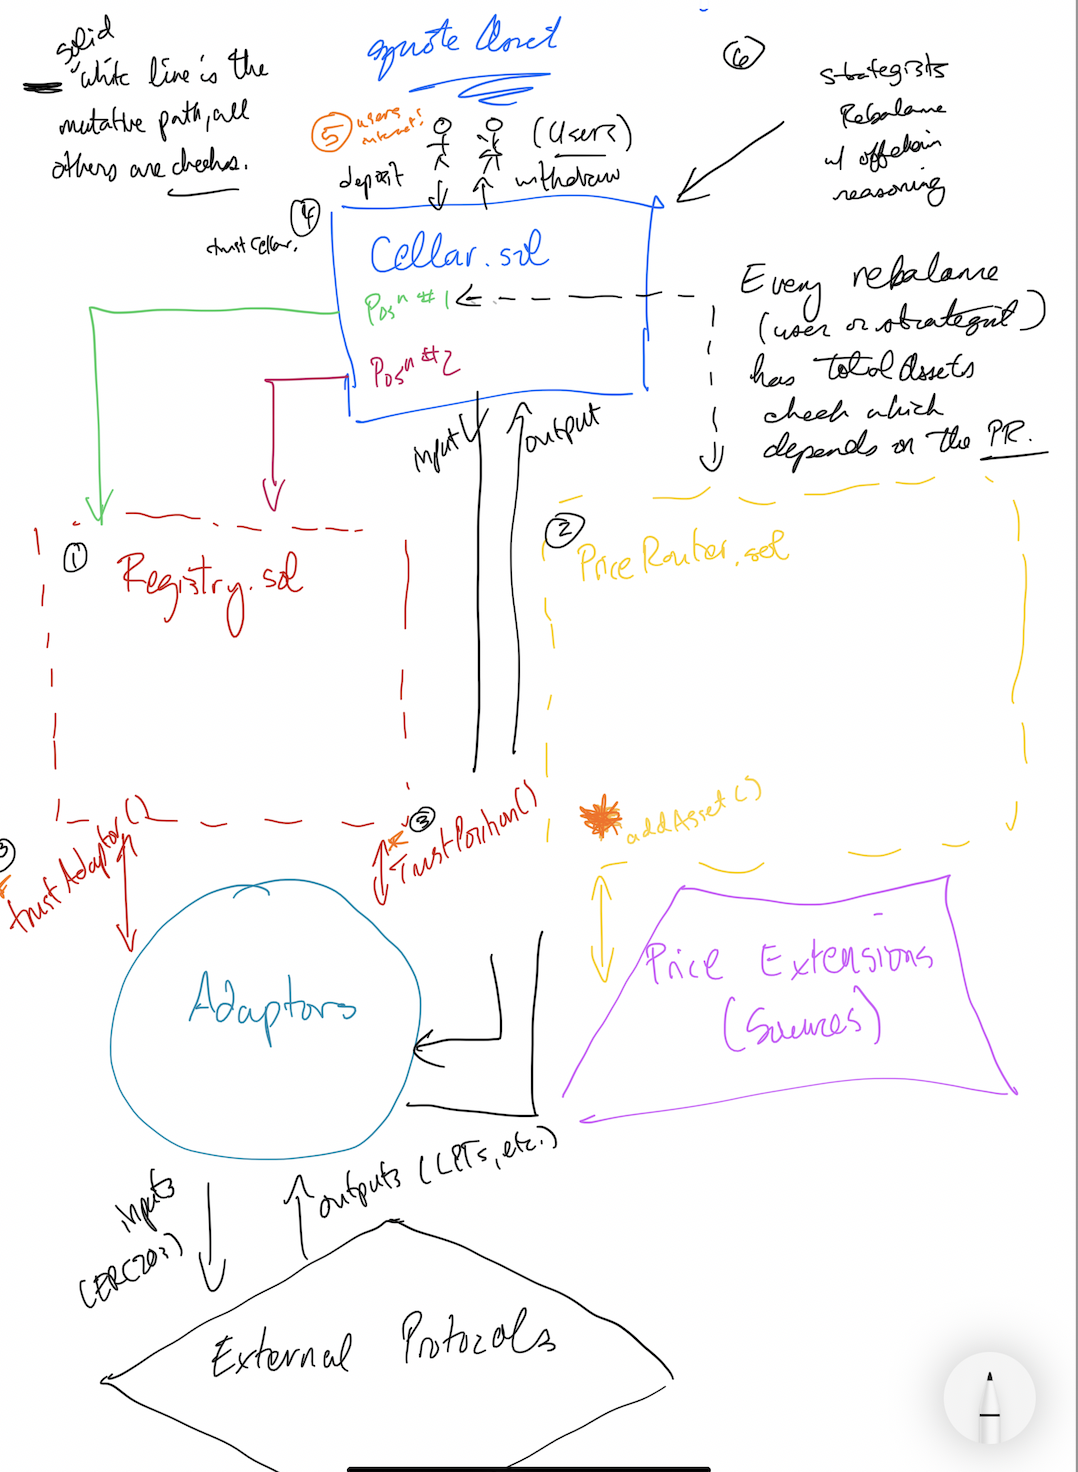 solid
white line is the
mutative path, all
others are checks.
Closet
6
strategists
Rebalance
w/ offchain
reasoning
5 users
interact:
(Users)
deposit
withdraw
4
trust Cellar.
Cellar.sol
Posⁿ #1
Posⁿ #2
Every rebalance
(user or strategist)
has total Assets
check which
depends on the PR.
input
output
1
Registry.sol
2
PriceRouter.sol
3
trustAdaptor()
3
TrustPosition()
addAsset()
Adaptors
Price Extensions
(Sources)
inputs
(ERC20s)
outputs (LPTs, etc.)
External Protocols